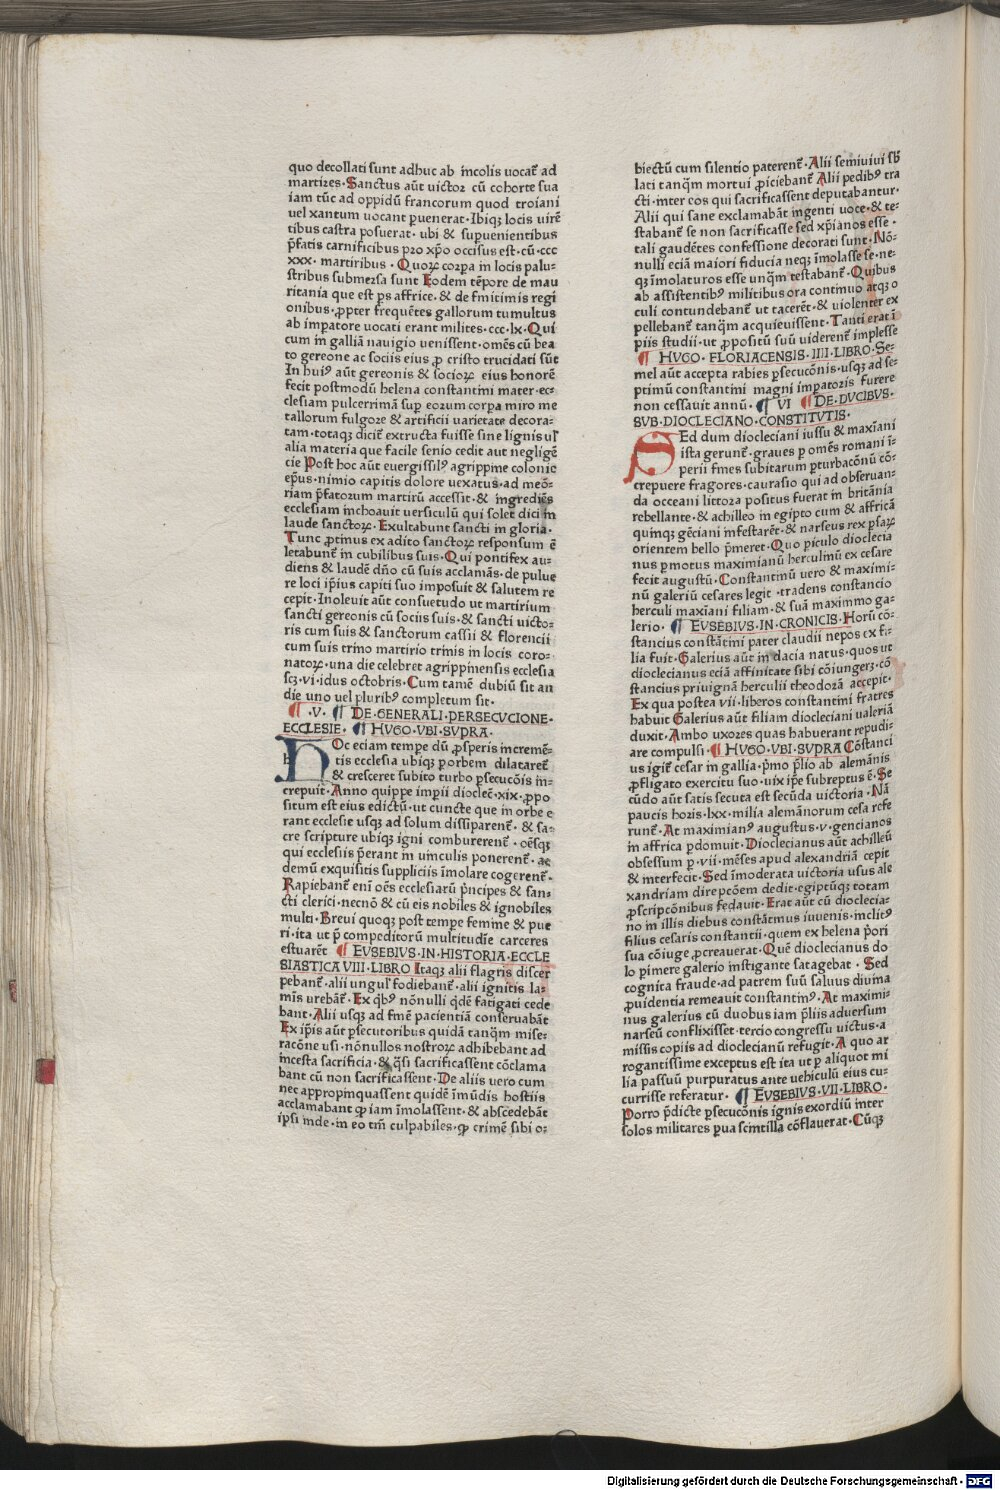 quo decollati sunt adhuc ab incolis uocat̃ ad
martires·Sanctus aũt uictor cũ cohorte sua
iam tũc ad oppidũ francorum quod troiani
uel xantum uocant ꝑuenerat·Ibiqꝫ locis uirẽ
tibus castra posuerat·ubi & supuenientibus
p̃fatis carnificibus pro xp̃o occisus est·cũ·ccc
xxx·martiribus·Quoꝝ corpa in locis palu-
stribus submersa sunt Eodem tẽpore de mau
ritania que est p̃s affrice·& de finitimis regi
onibus·ꝓpter frequẽtes gallorum tumultus
ab impatore uocati erant milites·ccc·lx·Qui
cum in galliã nauigio uenissent·omẽs cũ bea
to gereone ac sociis eius ꝓ cristo trucidati sũt
In huiꝰ aũt gereonis & socioꝝ eius honorẽ
fecit postmodũ helena constantini mater·ec-
clesiam pulcerrimã sup eorum corpa miro me
tallorum fulgore & artificii uarietate decora-
tam·totaqꝫ dicit̃ extructa fuisse sine lignis ul̃
alia materia que facile senio cedit aut negligẽ
cie Post hoc aũt euergissilꝰ agrippine colonie
ep̃us·nimio capitis dolore uexatus·ad meõ-
riam p̃fatorum martirũ accessit·& ingrediẽs
ecclesiam inchoauit uersiculũ qui solet dici in
laude sanctoꝝ·Exultabunt sancti in gloria·
Tunc ꝓtinus ex adito sanctoꝝ responsum ẽ
letabunt̃ in cubilibus suis·Qui pontifex au-
diens & laudẽ dño cũ suis acclamãs·de pulue
re loci ip̃ius capiti suo imposuit & salutem re
cepit·Inoleuit aũt consuetudo ut martirium
sancti gereonis cũ sociis suis·& sancti uicto-
ris cum suis & sanctorum cassii & florencii
cum suis trino martirio trinis in locis coro-
natoꝝ·una die celebret agrippinensis ecclesia
scꝫ·vi·idus octobris·Cum tamẽ dubiũ sit an
die uno uel pluribꝰ completum sit·
¶·V·¶ DE·GENERALI·PERSECVCIONE·
ECCLESIE·¶ HVGO·VBI·SVPRA·
HOc eciam tempe dũ ꝓsperis incremẽ-
tis ecclesia ubiqꝫ ꝑorbem dilataret̃
& cresceret subito turbo ꝑsecucõis in-
crepuit·Anno quippe impii dioclec̃·xix·ꝓpo
situm est eius edictũ·ut cuncte que in orbe e
rant ecclesie usqꝫ ad solum dissiparent̃·& sa-
cre scripture ubiqꝫ igni comburerent̃·oẽsqꝫ
qui ecclesiis p̃erant in uinculis ponerent̃·ac
demũ exquisitis suppliciis ĩmolare cogerent̃·
Rapiebant̃ enĩ oẽs ecclesiarũ p̃ncipes & san-
cti clerici·necnõ & cũ eis nobiles & ignobiles
multi·Breui quoqꝫ post tempe femine & pue
ri·ita ut p̃ compeditorũ multitudĩe carceres
estuarẽt ¶ EVSEBIVS·IN·HISTORIA·ECCLE
SIASTICA VIII·LIBRO Itaqꝫ alii flagris discer
pebant̃·alii ungul̃ fodiebant̃·alii ignitis la-
mĩs urebãt̃·Ex qbꝰ nõnulli qdẽ fatigati cede
bant·Alii usqꝫ ad finẽ pacientiã conseruabãt
Ex ip̃is aũt ꝑsecutoribus quidã tanqm̃ mise-
racõne usi·nõnullos nostroꝝ adhibebant ad
incesta sacrificia·& q̃si sacrificassent cõclama
bant cũ non sacrificassent·De aliis uero cum
nec appropinquassent quidẽ ĩmũdis hostiis
acclamabant ꝙ iam ĩmolassent·& abscedebãt
ipsi inde·in eo tm̃ culpabiles·ꝙ crimẽ sibi o-
biectũ cum silentio paterent̃·Alii semiuiui sb̃
lati tanqm̃ mortui ꝓiciebant̃ Alii pedibꝰ tra
cti·inter eos qui sacrificassent deputabantur·
Alii qui sane exclamabãt ingenti uoce·& te-
stabant̃ se non sacrificasse sed xp̃ianos esse·
tali gaudẽtes confessione decorati sunt·Nõ-
nulli eciã maiori fiducia neqꝫ ĩmolasse se·ne-
qꝫ ĩmolaturos esse unqm̃ testabant̃·Quibus
ab assistentibꝰ militibus ora continuo atqꝫ o
culi contundebant̃ ut tacerẽt·& uiolenter ex
pellebant̃ tanqm̃ acquieuissent·Tanti erat ĩ
piis studii·ut ꝓpositũ suũ uiderent̃ implesse
¶ HVGO·FLORIACENSIS·IIII·LIBRO·Se-
mel aũt accepta rabies ꝑsecucõnis·usqꝫ ad se-
ptimũ constantini magni impatoris furere
non cessauit annũ·¶ VI ¶ DE·DVCIBVS·
SVB·DIOCLECIANO·CONSTITVTIS·
SEd dum diocleciani iussu & maxĩani
ista gerunt̃·graues p omẽs romani ĩ-
perii fines subitarum ꝑturbacõnũ cõ-
crepuere fragores·caurasio qui ad obseruan-
da occeani littora positus fuerat in britãnia
rebellante·& achilleo in egipto cum & affricã
quinqꝫ gẽciani infestarẽt·& narseus rex p̃saꝝ
orientem bello p̃meret·Quo p̃iculo dioclecia
nus ꝑmotus maximianũ herculinũ ex cesare
fecit augustũ·Constantinũ uero & maximi-
nũ galeriũ cesares legit·tradens constancio
herculi maxĩani filiam·& suã maximino ga-
lerio·¶ EVSEBIVS·IN·CRONICIS·Horũ cõ-
stancius constãtini pater claudii nepos ex fi-
lia fuit·Galerius aũt in dacia natus·quos ut
dioclecianus eciã affinitate sibi cõiungerꝫ·cõ
stancius priuignã herculii theodorã accepit·
Ex qua postea vii·liberos constantini fratres
habuit Galerius aũt filiam diocleciani ualeriã
duxit·Ambo uxores quas habuerant repudi-
are compulsi·¶ HVGO·VBI·SVPRA Cõstanci
us igit̃ cesar in gallia·p̃mo p̃lio ab alemãnis
ꝓfligato exercitu suo·uix ip̃e subreptus ẽ·Se
cũdo aũt satis secuta est secũda uictoria·Nã
paucis horis·lxx·milia alemãnorum cesa refe
runt̃·At maximianꝰ augustus·v·gencianos
in affrica ꝑdomuit·Dioclecianus aũt achilleũ
obsessum p·vii·mẽses apud alexandriã cepit
& interfecit·Sed ĩmoderata uictoria usus ale
xandriam direpcõem dedit·egiptũqꝫ totam
ꝓscripcõnibus fedauit·Erat aũt cũ dioclecia-
no in illis diebus constãtinus iuuenis·inclitꝰ
filius cesaris constantii·quem ex helena p̃ori
sua cõiuge ꝓcreauerat·Quẽ dioclecianus do
lo p̃imere galerio instigante satagebat·Sed
cognita fraude·ad patrem suũ saluus diuina
ꝓuidentia remeauit constantinꝰ·At maximi-
nus galerius cũ duobus iam p̃liis aduersum
narseũ conflixisset·tercio congressu uictus·a
missis copiis ad dioclecianũ refugit·A quo ar
rogantissime exceptus est ita ut p aliquot mi
lia passuũ purpuratus ante uehiculũ eius cu-
currisse referatur·¶ EVSEBIVS·VII·LIBRO·
Porro p̃dicte ꝑsecucõnis ignis exordiũ inter
solos militares ꝑua scintilla cõflauerat·Cũqꝫ
Digitalisierung gefördert durch die Deutsche Forschungsgemeinschaft · DFG